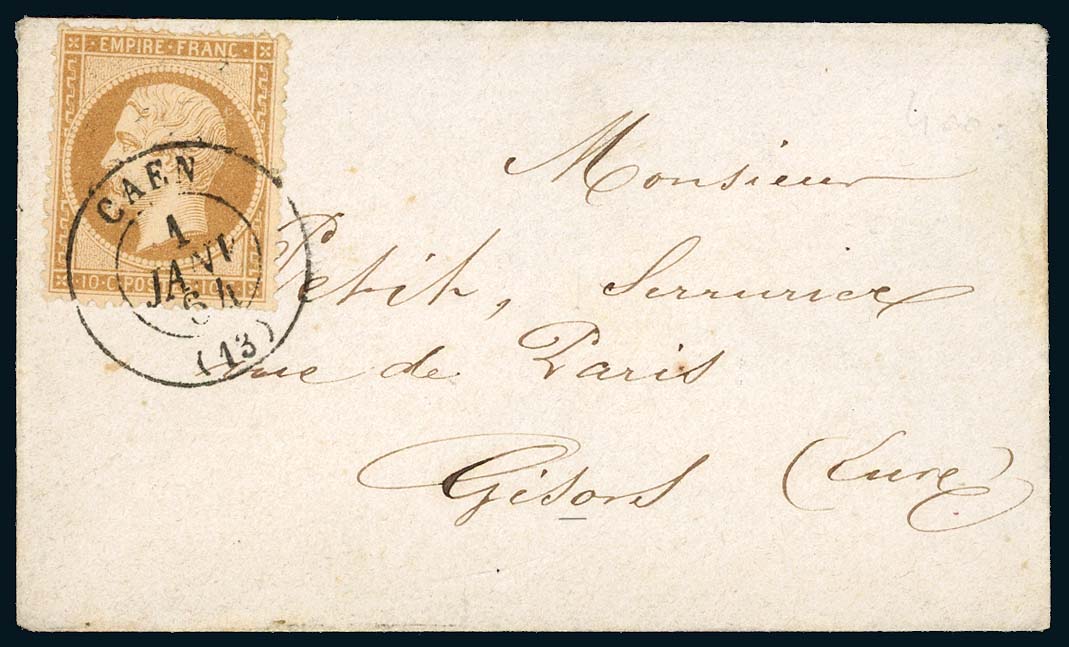 EMPIRE · FRANC
10·C POSTES 10·C
CAEN
1
JANV
64
(13)
Monsieur
Petit, Serrurier
rue de Paris
Gisors (Eure)